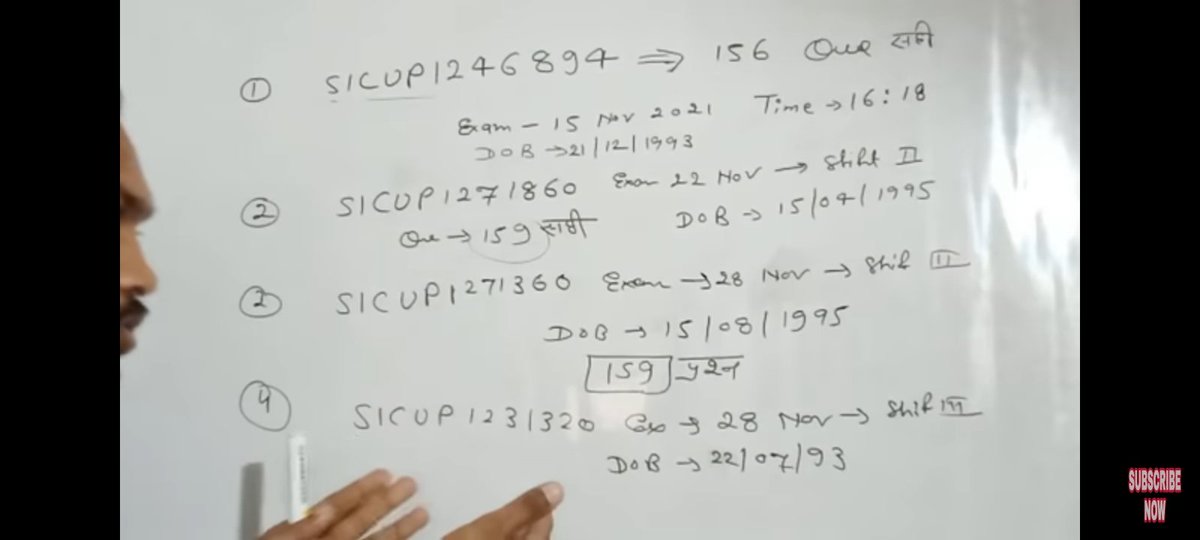 ① SICUP1246894 ⇒ 156 Que सही
Exam - 15 Nov 2021 Time → 16:18
DOB → 21/12/1993
② SICUP1271860 Exam 22 Nov → Shift II
Que → 159 सही DOB → 15/04/1995
② SICUP1271360 Exam → 28 Nov → Shif III
DOB → 15/08/1995
159 प्रश्न
4 SICUP1231320 Ex → 28 Nov → Shif III
DOB → 22/07/93
SUBSCRIBE
NOW